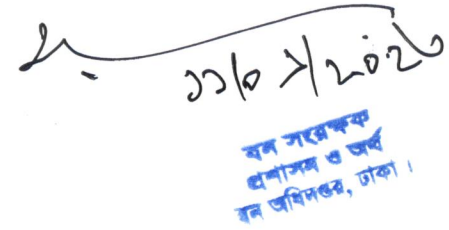 ১১/০১/২০২৬
বন সংরক্ষক
প্রশাসন ও অর্থ
বন অধিদপ্তর, ঢাকা।